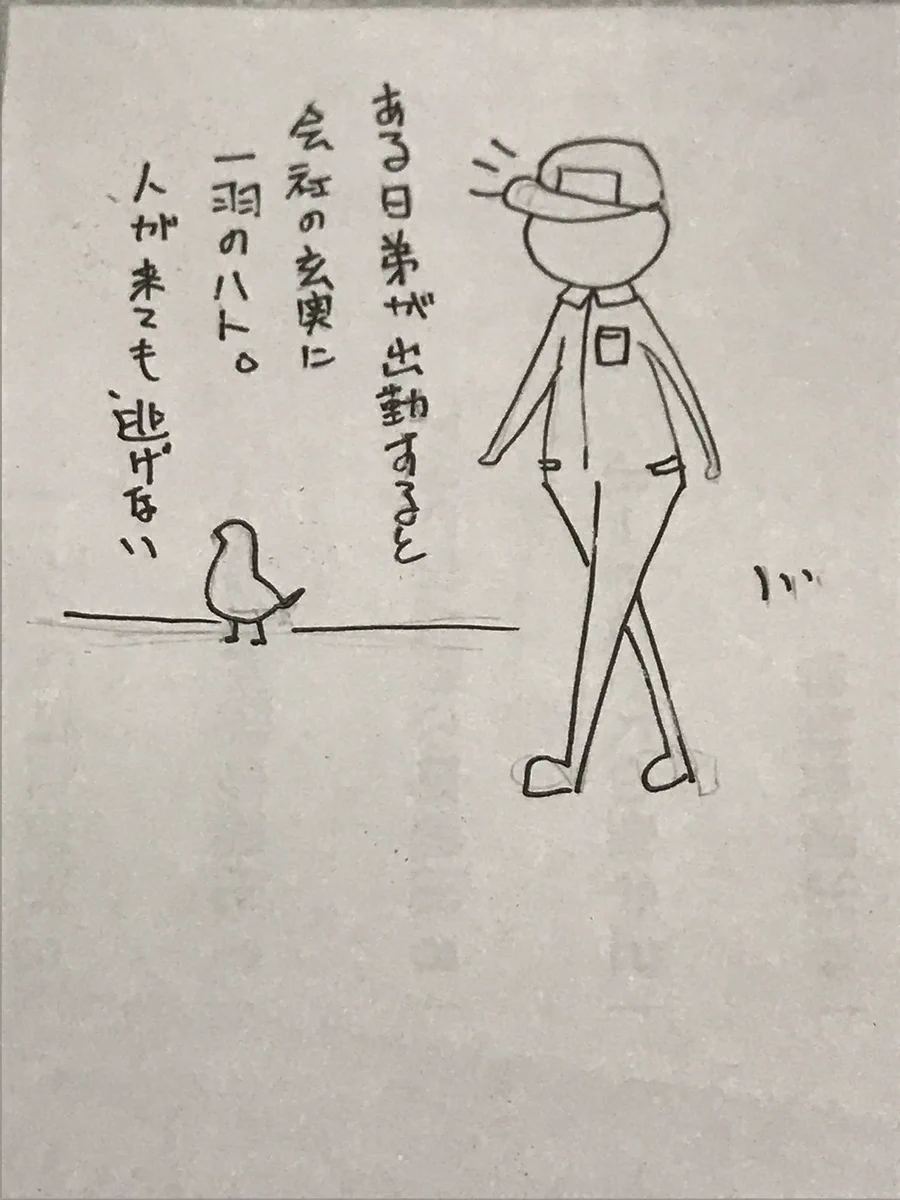 ある日弟が出勤すると
会社の玄関に
一羽のハト。
人が来ても逃げない